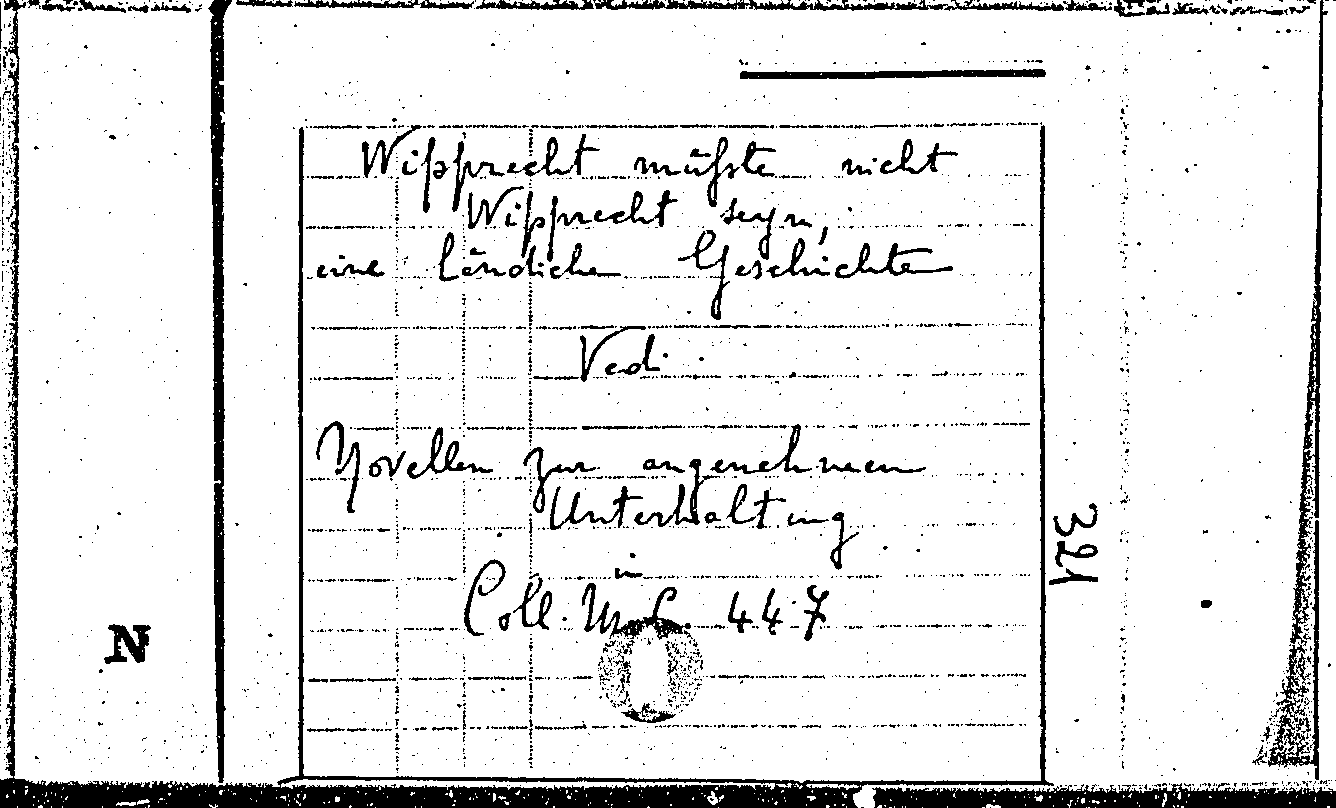 Wipprecht müßte nicht
Wipprecht seyn,
eine ländliche Geschichte
Vedi
Novellen zur angenehmen
Unterhaltung
in
Coll. M.S. 447
321
N